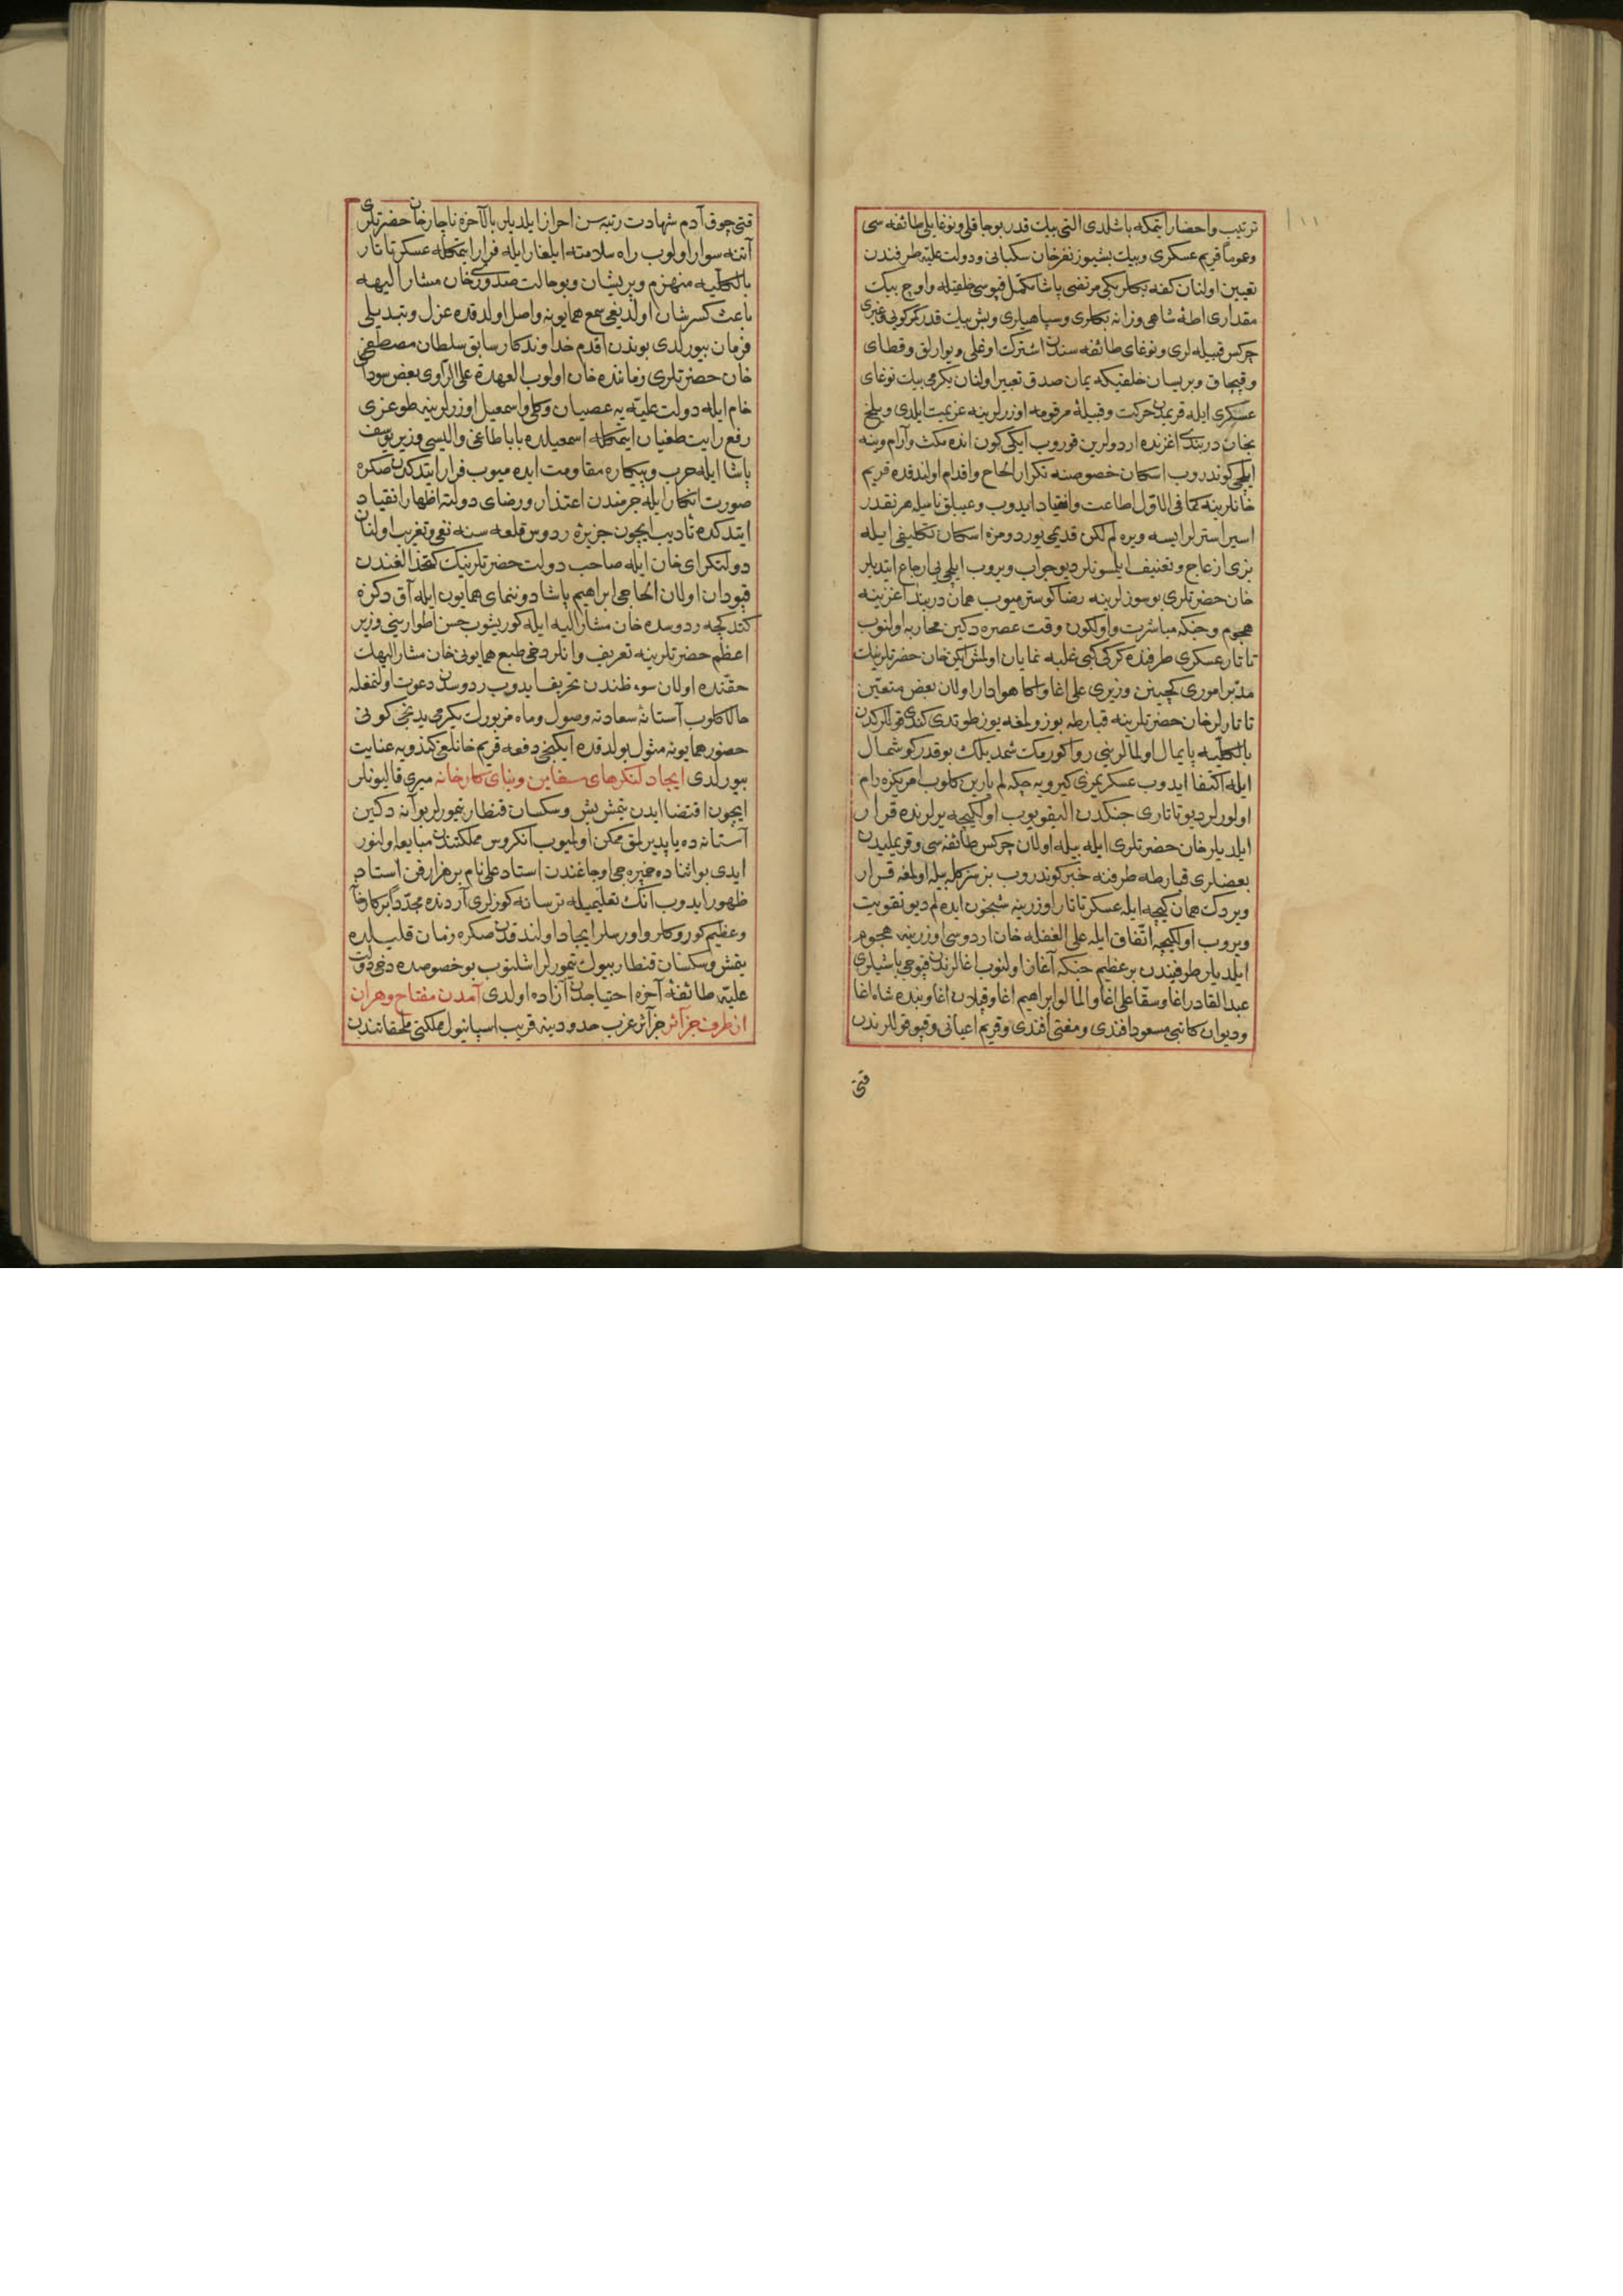 ترتیب واحضار ایتمکه باشلدی التی بیك قدر بوجاقلی ونوغایلی طائفه سی
وعموما قریم عسکری وبیك بشیوز نفر خان سکبانی ودولت علیه طرفندن
تعیین اولنان کفه بکلربکی مرتضی پاشا مکمل قپوسی خلقیله واوچ بیك
مقداری اطۀ شاهی وزانه بکلری وسپاهیلری وبش بیك قدر کرکونی غیری
چرکس قبیله لری ونوغای طائفه سندن اشترك اوغلی ویوارلق وقطای
وقپچاق وبریسان خلقیکه یمان صدق تعبیر اولنان یکرمی بیك نوغای
عسکری ایله قریمدن حرکت وقبیلۀ مرقومه اوزرلرینه عزیمت ایلدی وبلخ
بخان دربندی اغزنده اردولرین قوروب ایکی کون انده مکث وآرام وینه
ایلچی کوندروب اسکان خصوصنه تکرار الحاح واقدام اولندقده قریم
خانلرینه کما فی الاول اطاعت وانقیاد ایدوب وعیبلق نامیله هر نقدر
اسیر استرلر ایسه ویره لم لکن قدیمی یوردومزه اسکان تکلیفی ایله
بزی ازعاج وتعنیف ایلسونلر دیو جواب ویروب ایلچی یی ارجاع ایتدیلر
خان حضرتلری بو سوزلرینه رضا کوسترمیوب همان دربند اغزینه
هجوم وجنکه مباشرت واولکون وقت عصره دکین محاربه اولنوب
تاتار عسکری طرفنده کرکی کبی غلبه نمایان اولمش ایکن خان حضرتلرینك
مدبر اموری کچینن وزیری علی اغا واکا هوادار اولان بعض متعین
تاتارلر خان حضرتلرینه قبارطه بوزولمغه یوز طوتدی کندی قوللرکدن
بالکلیه پایمال اولمالرینی روا کورمك شمدیلك بو قدر کوشمال
ایله اکتفا ایدوب عسکریمزی کیرویه چکه لم یارین کلوب امریکزه رام
اولورلر دیو تاتاری جنکدن الیقویوب اولکیجه یرلرنده قرار
ایلدیلر خان حضرتلری ایله بیله اولان چرکس طائفه سی وقریملیدن
بعضلری قبارطه طرفنه خبر کوندروب بز سزکله بیله اولمغه قرار
ویردك همان کیجه ایله عسکر تاتار اوزرینه شبخون ایده لم دیو تقویت
ویروب اولکیجه اتفاق ایله علی الغفله خان اردوسی اوزرینه هجوم
ایلدیلر طرفیندن بر عظیم جنکه آغاز اولنوب اغالرندن قپوجی باشیلری
عبد القادر اغا وسقا علی اغا والمالو ابراهیم اغا وقپلان اغا وبنده شاه اغا
ودیوان کاتبی مسعود افندی ومفتی افندی وقریم اعیانی وقپو قوللرندن
قتی
قتی چوق آدم شهادت رتبه سن احراز ایلدیلر بالآخره ناچار خان حضرتلری
آتنه سوار اولوب راه سلامته ایلغار ایله فرار ایتمکله عسکر تاتار
بالکلیه منهزم وپریشان وبو حالت صدوری خان مشار الیهه
باعث کسر شان اولدیغی سمع همایونه واصل اولدقده عزل وتبدیلی
فرمان بیورلدی بوندن اقدم خداوندکار سابق سلطان مصطفی
خان حضرتلری زماننده خان اولوب العهدة علی الراوی بعض سودای
خام ایله دولت علیه یه عصیان وکلی واسمعیل اوزرلرینه طوغری
رفع رایت طغیان ایتمکله اسمعیلده باباطاغی والیسی وزیر یوسف
پاشا ایله حرب وپیکاره مقاومت ایده میوب فرار ایتدکدن صکره
صورت انکار ایله جرمندن اعتذار ورضای دولته اظهار انقیاد
ایتدکده تادیب ایچون جزیرۀ ردوس قلعه سنه نفی وتغریب اولنان
دولتکرای خان ایله صاحب دولت حضرتلرینك کتخدالغندن
قپودان اولان الحاجی ابراهیم پاشا دوننمای همایون ایله آق دکزه
کتدکجه ردوسده خان مشار الیه ایله کوریشوب حسن اطوارینی وزیر
اعظم حضرتلرینه تعریف وانلر دخی طبع همایونی خان مشار الیهك
حقنده اولان سوء ظندن تحریف ایدوب ردوسدن دعوت اولنمغله
حالا کلوب آستانۀ سعادته وصول وماه مزبورك یکرمی یدنجی کونی
حضور همایونه مثول بولدقده ایکینجی دفعه قریم خانلغی کندویه عنایت
بیورلدی ایجاد لنکرهای سفاین وبنای کارخانه میری قالیونلر
ایچون اقتضا ایدن یتمش بش وسکسان قنطار تیمورلر بو آنه دکین
آستانه ده یاپدیرلمق ممکن اولمیوب انکروس مملکتندن مبایعه اولنور
ایدی بو اثناده خمبره جی اوجاغندن استاد علی نام بر هزارفن استاد
ظهور ایدوب انك تعلیمیله ترسانه کوزلری آردنده مجددا بر کارخانه
وعظیم کوروکلر واورسلر ایجاد اولندقدن صکره زمان قلیلده
یتمش وسکسان قنطار بیوك تیمورلر اشلنوب بو خصوصده دخی دولت
علیه طائفۀ آخره احتیاجدن آزاده اولدی آمدن مفتاح وهران
از طرف جزائر جزائر غرب حدودینه قریب اسپانیول ملکنی ملحقاتندن